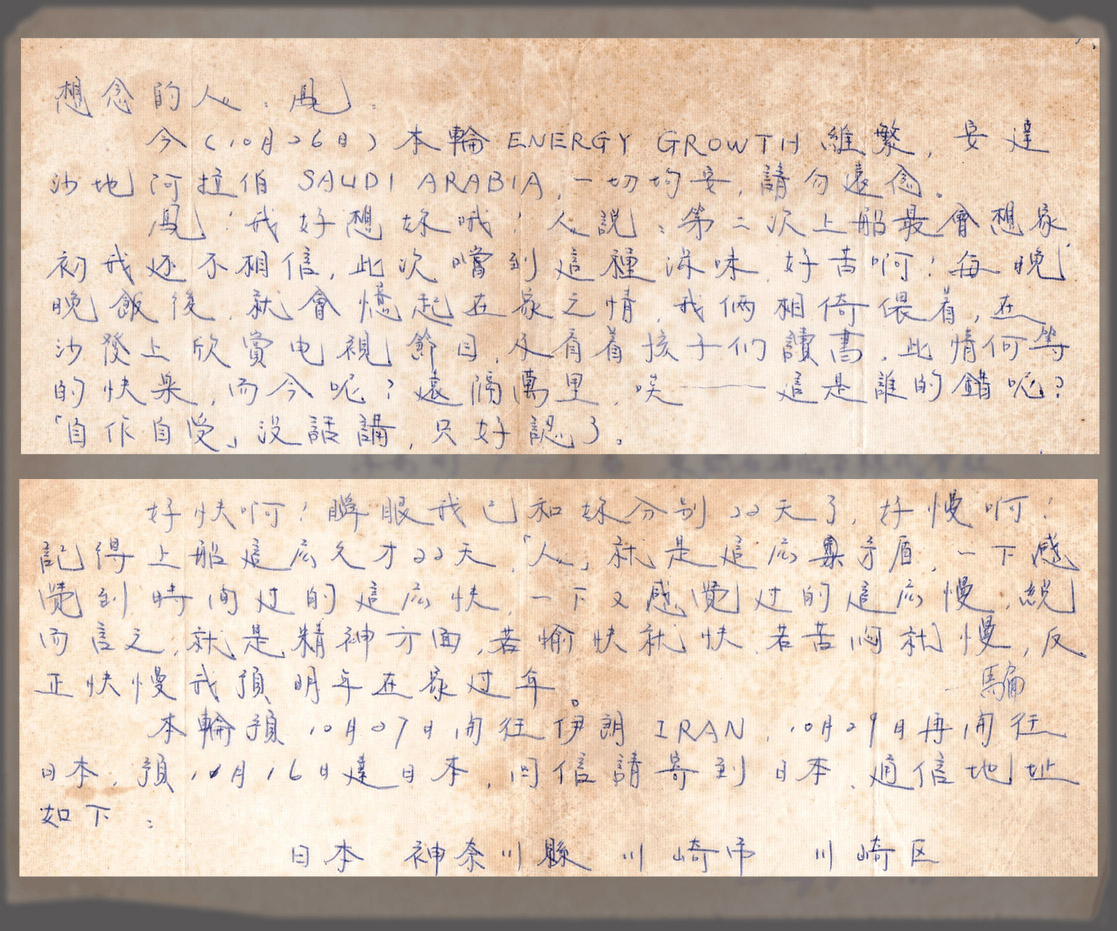 想念的人：鳳：
今(10月26日)本輪 ENERGY GROWTH 維繁，安達
沙地阿拉伯 SAUDI ARABIA，一切均安，請勿遠念。
鳳！我好想妹哦！人説：第二次上船最會想家，
初我还不相信，此次嚐到這種滋味，好苦啊！每晚
晚飯後，就會憶起在家之情，我俩相倚偎着，在
沙發上欣賞电視節目，及看着孩子们讀書，此情何等
的快樂，而今呢？遠隔萬里，唉——這是誰的錯呢？
「自作自受」没話講，只好認了。
好快啊！瞬眼我已和妹分别22天了，好慢啊！
記得上船這広久才22天，「人」就是這広矛盾，一下感
覺到時间过的這広快，一下又感覺过的這広慢，總
而言之，就是精神方面，若愉快就快，若苦悶就慢，反
正快慢我預明年在家过年。
騙
本輪預10月27日闲往伊朗 IRAN，10月29日再闲往
日本，預11月16日達日本，回信請寄到日本，通信地址
如下：
日本 神奈川縣 川崎市 川崎区